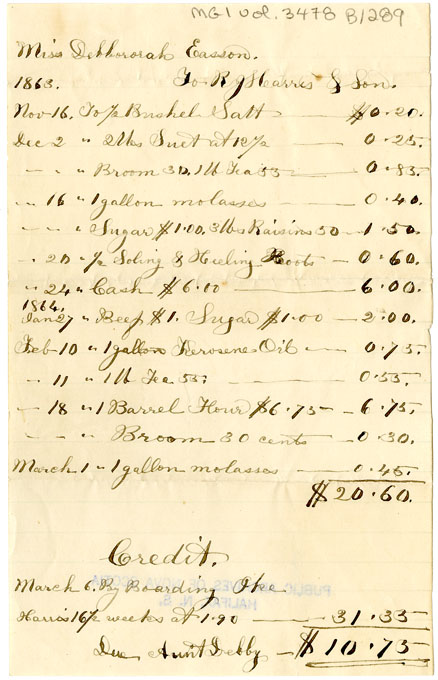 MG1 vol. 3478 B1289
Miss Debhororah Easson.
1863. To R J Harris & Son.
Nov 16. To ½ Bushel Salt $0.20
Dec 2 " 2 lbs Suet at 12½ 0.25
" " " Broom 30. 1 lb Tea 55 0.85
" 16 " 1 gallon molasses 0.40
" " " Sugar $1.00. 3 lbs Raisins 50 1.50
" 20 " ½ Soling & Heeling Boots 0.60
" 24 " Cash $6.00 6.00
1864.
Jan 27 " Beef $1. Sugar $1.00 2.00
Feb 10 " 1 gallon Kerosene Oil 0.75
" 11 " 1 lb Tea 55 0.55
" 18 " 1 Barrel Flour $6.75 6.75
" " Broom 30 cents 0.30
March 1 " 1 gallon molasses 0.45
$20.60
Credit.
PUBLIC ARCHIVES OF NOVA SCOTIA
HALIFAX, N. S.
March 6. By Boarding
Harris 16½ weeks at 1.90 31.35
Due Aunt Debby $10.75